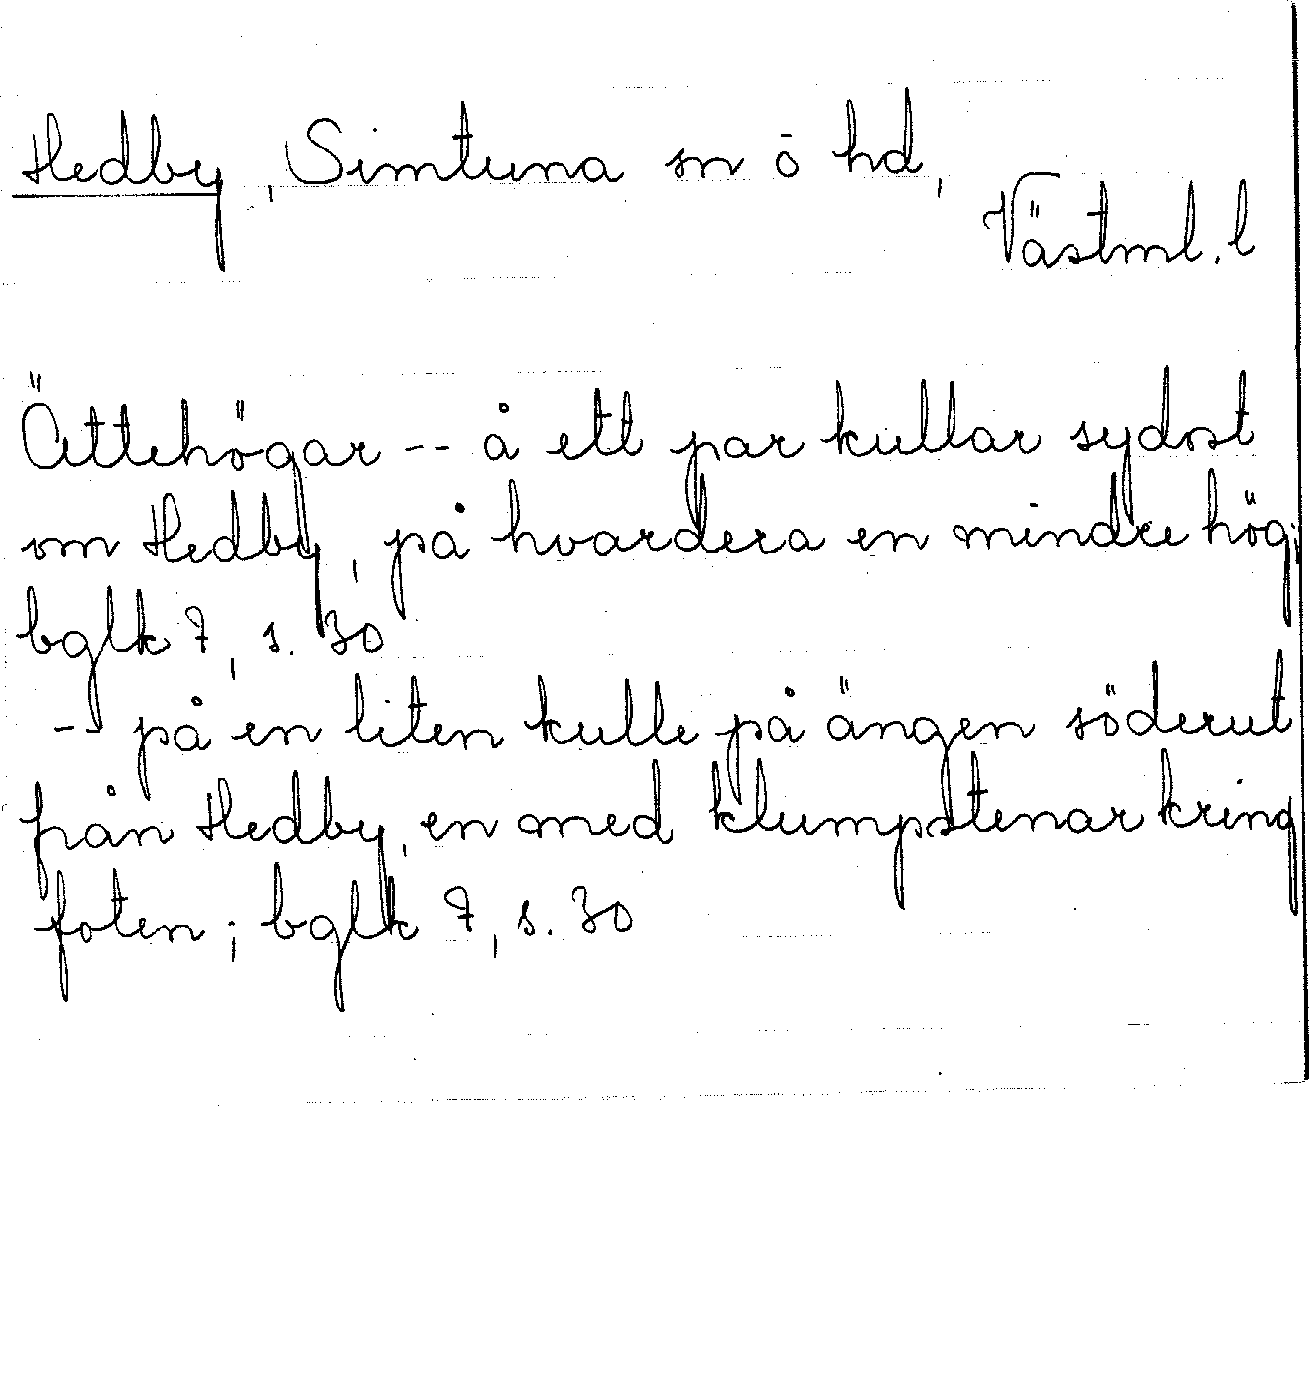 Hedby, Simtuna sn o hd,
Västml. l
Ättehögar -- å ett par kullar sydost
om Hedby, på hvardera en mindre hög;
bglk 7, s. 30
-- på en liten kulle på ängen söderut
från Hedby, en med klumpstenar kring
foten; bglk 7, s. 30